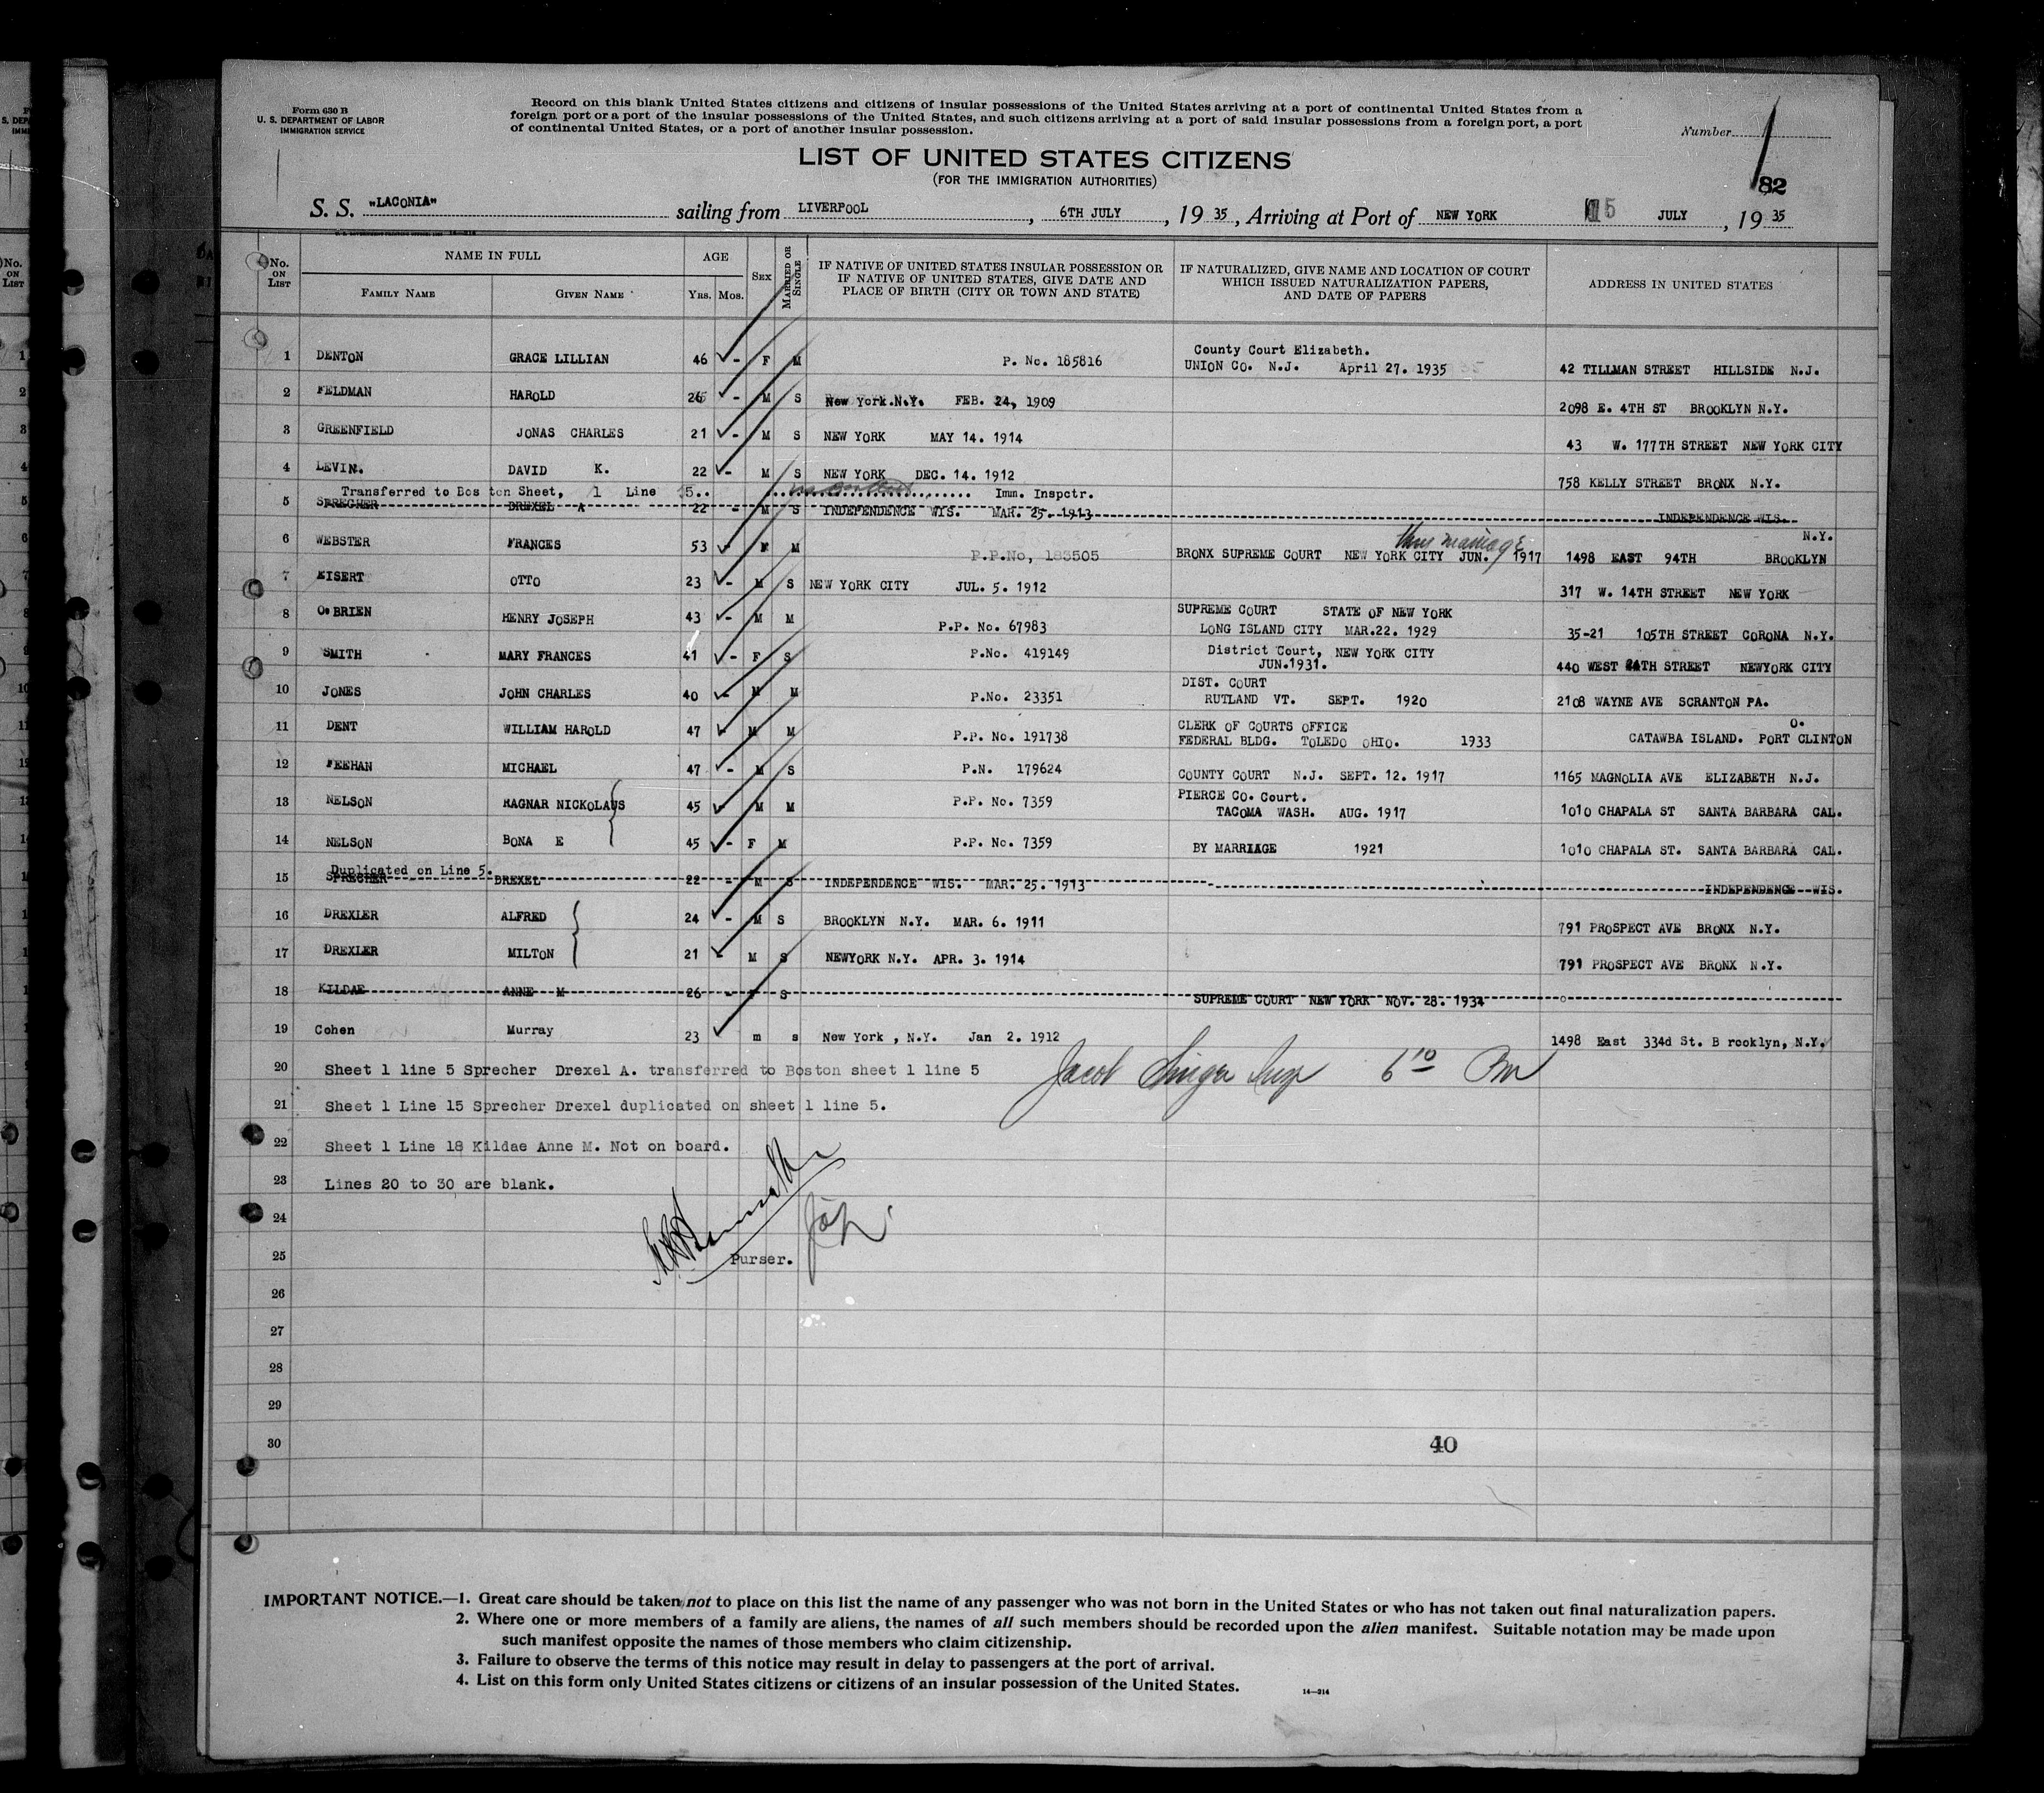 Form 630 B
U. S. DEPARTMENT OF LABOR
IMMIGRATION SERVICE
Record on this blank United States citizens and citizens of insular possessions of the United States arriving at a port of continental United States from a
foreign port or a port of the insular possessions of the United States, and such citizens arriving at a port of said insular possessions from a foreign port, a port
of continental United States, or a port of another insular possession.
Number 1
LIST OF UNITED STATES CITIZENS
(FOR THE IMMIGRATION AUTHORITIES)
82
S. S. "LACONIA" sailing from LIVERPOOL, 6TH JULY, 19 35, Arriving at Port of NEW YORK 15 JULY, 19 35
No. ON LIST
NAME IN FULL
FAMILY NAME GIVEN NAME
AGE
YRS. MOS.
SEX
MARRIED OR SINGLE
IF NATIVE OF UNITED STATES INSULAR POSSESSION OR
IF NATIVE OF UNITED STATES, GIVE DATE AND
PLACE OF BIRTH (CITY OR TOWN AND STATE)
IF NATURALIZED, GIVE NAME AND LOCATION OF COURT
WHICH ISSUED NATURALIZATION PAPERS,
AND DATE OF PAPERS
ADDRESS IN UNITED STATES
1 DENTON GRACE LILLIAN 46 - F M P. No. 185816 County Court Elizabeth.
UNION CO. N.J. April 27. 1935 42 TILLMAN STREET HILLSIDE N.J.
2 FELDMAN HAROLD 26 - M S New York.N.Y. FEB. 24, 1909 2098 E. 4TH ST BROOKLYN N.Y.
3 GREENFIELD JONAS CHARLES 21 - M S NEW YORK MAY 14. 1914 43 W. 177TH STREET NEW YORK CITY
4 LEVIN. DAVID K. 22 - M S NEW YORK DEC. 14. 1912 758 KELLY STREET BRONX N.Y.
Transferred to Bos ton Sheet, 1 Line 5.. Imm. Inspctr.
5 SPRECHER DREXEL A 22 - M S INDEPENDENCE WIS. MAR. 25. 1913 INDEPENDENCE WIS.
6 WEBSTER FRANCES 53 - F M P.P.No, 183505 BRONX SUPREME COURT NEW YORK CITY JUN. 1917 thru marriage 1498 EAST 94TH BROOKLYN N.Y.
7 EISERT OTTO 23 - M S NEW YORK CITY JUL. 5. 1912 317 W. 14TH STREET NEW YORK
8 O'BRIEN HENRY JOSEPH 43 - M M P.P. No. 67983 SUPREME COURT STATE OF NEW YORK
LONG ISLAND CITY MAR.22. 1929 35-21 105TH STREET CORONA N.Y.
9 SMITH MARY FRANCES 41 - F S P.No. 419149 District Court, NEW YORK CITY
JUN.1931. 440 WEST 24TH STREET NEWYORK CITY
10 JONES JOHN CHARLES 40 - M M P.No. 23351 DIST. COURT
RUTLAND VT. SEPT. 1920 2108 WAYNE AVE SCRANTON PA.
11 DENT WILLIAM HAROLD 47 - M M P.P. No. 191738 CLERK OF COURTS OFFICE
FEDERAL BLDG. TOLEDO OHIO. 1933 CATAWBA ISLAND. PORT CLINTON O.
12 FEEHAN MICHAEL 47 - M S P.N. 179624 COUNTY COURT N.J. SEPT. 12. 1917 1165 MAGNOLIA AVE ELIZABETH N.J.
13 NELSON RAGNAR NICKOLAUS 45 - M M P.P. No. 7359 PIERCE CO. Court.
TACOMA WASH. AUG. 1917 1010 CHAPALA ST SANTA BARBARA CAL.
14 NELSON BONA E 45 - F M P.P. No. 7359 BY MARRIAGE 1921 1010 CHAPALA ST. SANTA BARBARA CAL.
Duplicated on Line 5.
15 SPRECHER DREXEL 22 - M S INDEPENDENCE WIS. MAR. 25. 1913 INDEPENDENCE WIS.
16 DREXLER ALFRED 24 - M S BROOKLYN N.Y. MAR. 6. 1911 791 PROSPECT AVE BRONX N.Y.
17 DREXLER MILTON 21 - M S NEWYORK N.Y. APR. 3. 1914 791 PROSPECT AVE BRONX N.Y.
18 KILDAE ANNE M 26 - F S SUPREME COURT NEW YORK NOV. 28. 1934
19 Cohen Murray 23 m s New York , N.Y. Jan 2. 1912 1498 East 334d St. B rooklyn, N.Y.
20 Sheet 1 line 5 Sprecher Drexel A. transferred to Boston sheet 1 line 5
Jacob Singer Insp 6 10 Pm
21 Sheet 1 Line 15 Sprecher Drexel duplicated on sheet 1 line 5.
22 Sheet 1 Line 18 Kildae Anne M. Not on board.
23 Lines 20 to 30 are blank.
24
25 Purser.
26
27
28
29
30 40
IMPORTANT NOTICE.—1. Great care should be taken not to place on this list the name of any passenger who was not born in the United States or who has not taken out final naturalization papers.
2. Where one or more members of a family are aliens, the names of all such members should be recorded upon the alien manifest. Suitable notation may be made upon
such manifest opposite the names of those members who claim citizenship.
3. Failure to observe the terms of this notice may result in delay to passengers at the port of arrival.
4. List on this form only United States citizens or citizens of an insular possession of the United States.
14—214